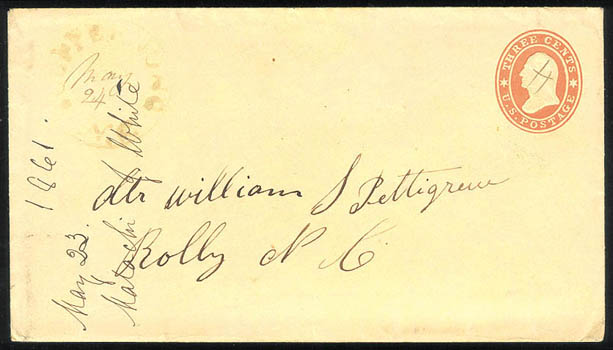 THREE CENTS
U.S. POSTAGE
May
24
Mr William S Pettigrew
Rolly N C
May 23. 1861.
Malachi J White